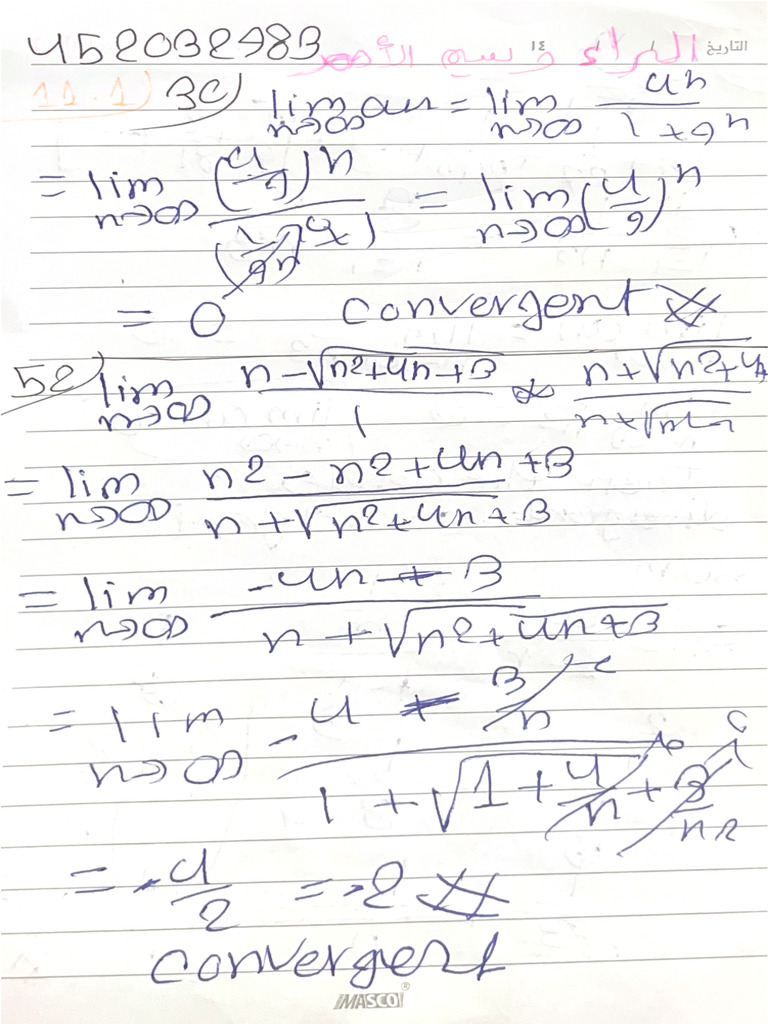 التاريخ / / ١٤
452032983 البراء وسيم الأحمد
11.1) 30) lim n→∞ an = lim n→∞ 4^n / 1+9^n
= lim n→∞ (4/9)^n / (1/9^n + 1) = lim n→∞ (4/9)^n
= 0 convergent
52) lim n→∞ n-√n2+4n+3 / 1 * n+√n2+4n / n+√n2
= lim n→∞ n2 - n2+4n+3 / n+√n2+4n+3
= lim n→∞ -4n-3 / n+√n2+4n+3
= lim n→∞ -4 - 3/n / 1+√1+4/n+3/n2
= -4/2 = -2
convergent
MASCO®